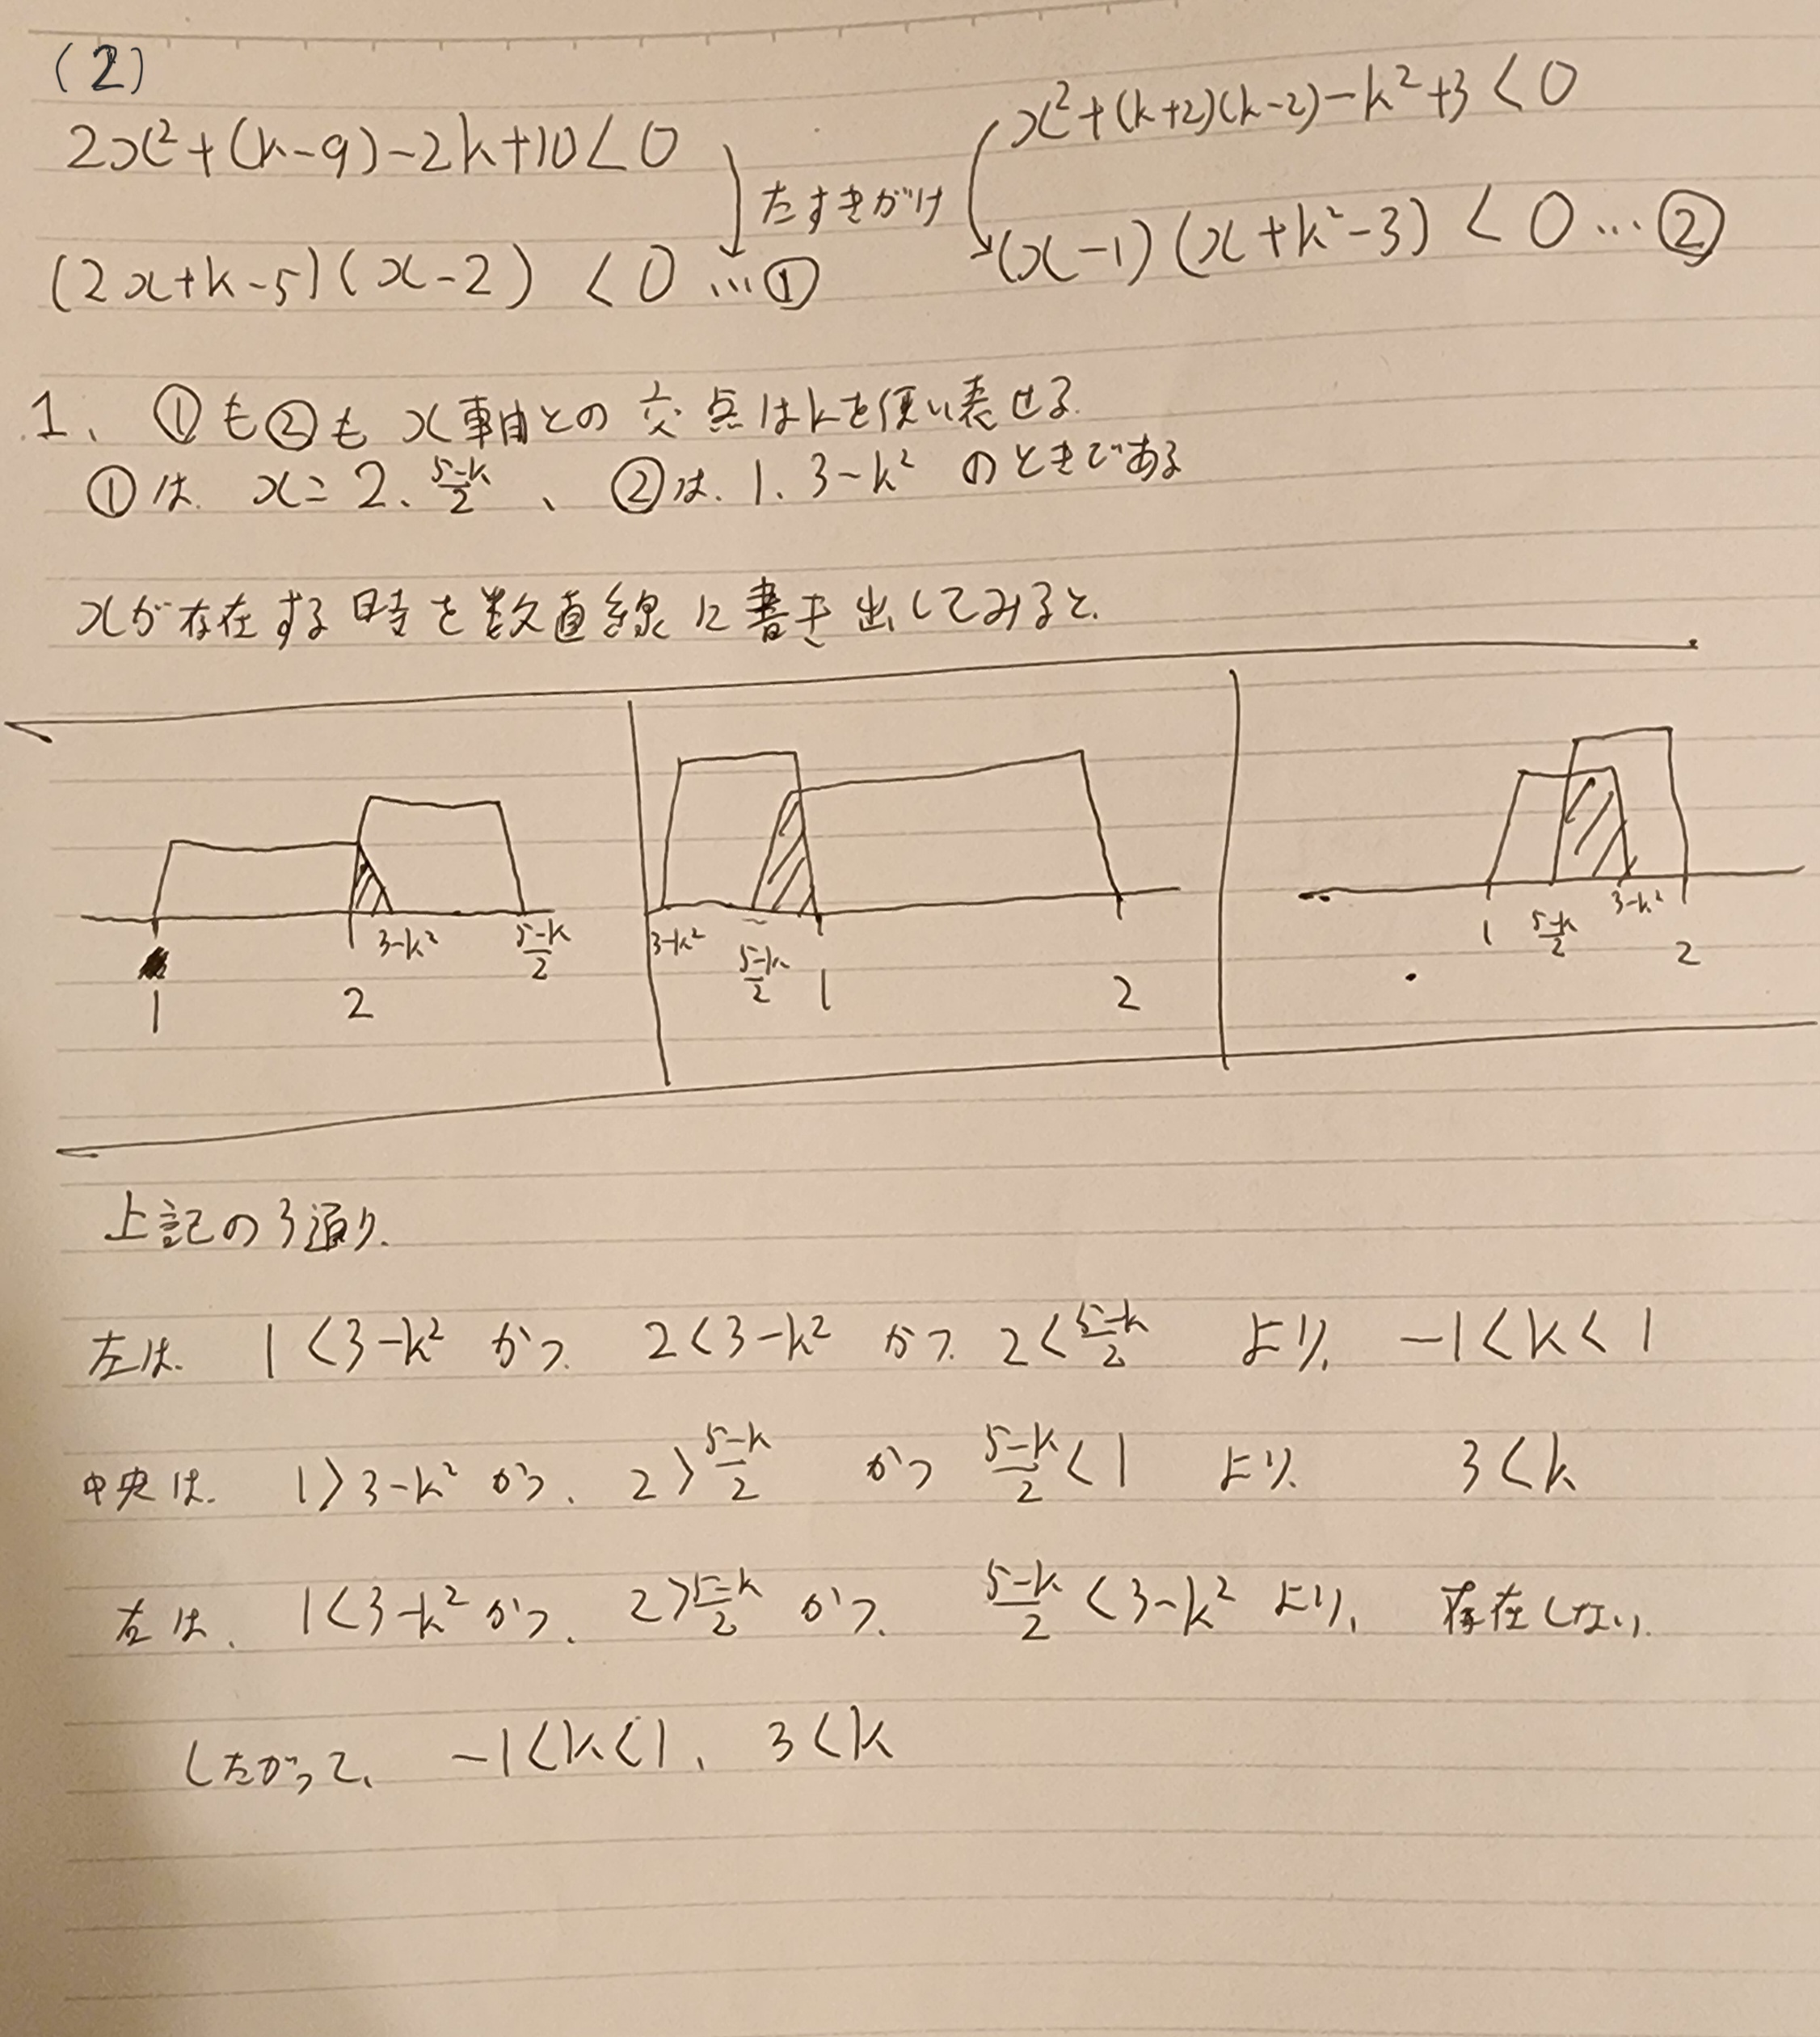 (2)
2x²+(k-9)-2k+10<0
たすきがけ
(2x+k-5)(x-2) <0 …①
x²+(k+2)(k-2)-k²+3<0
(x-1)(x+k²-3) <0…②
1、①も②もx軸との交点はkを使い表せる
①は x=2、(5-k)/2、②は、1、3-k² のときである
xが存在する時を数直線に書き出してみると、
1 2 3-k² (5-k)/2
3-k² (5-k)/2 1 2
1 (5-k)/2 3-k² 2
上記の3通り、
左は、 1<3-k² かつ、 2<3-k² かつ、 2<(5-k)/2 より、 -1<k<1
中央は、 1>3-k² かつ、 2>(5-k)/2 かつ (5-k)/2<1 より、 3<k
右は、 1<3-k² かつ、 2>(5-k)/2 かつ、 (5-k)/2<3-k² より、 存在しない、
したがって、 -1<k<1、 3<k